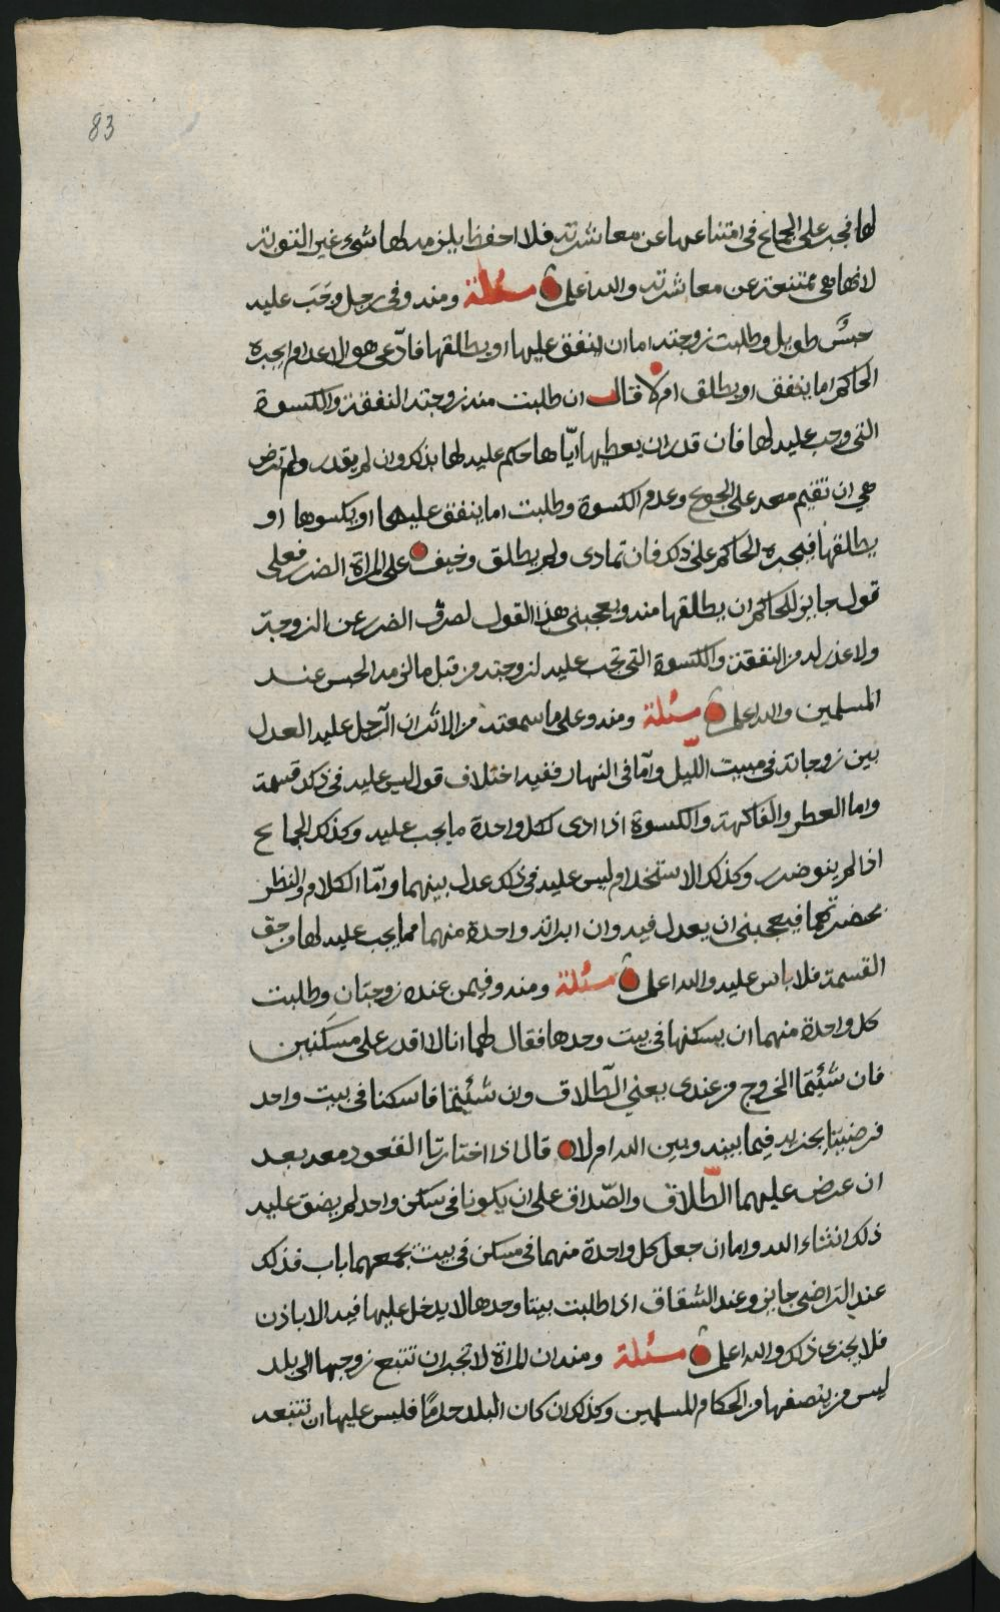 83
لها فجبر على الجماع في امتناعها عن معاشرته فلا احفظ يلزمه لها شيء غير التوبة
لانها هي ممتنعة عن معاشرته والله اعلم مسئلة ومنه وفي رجل وَجَبَ عليه
حبسٌ طويل وطلبت زوجته اما ان ينفق عليها او يطلقها فادّعى هو الاعدام ايجبره
الحاكم اما ينفق او يطلق ام لا قال ان طلبت منه زوجته النفقة والكسوة
التي وجب عليه لها فان قدر ان يعطيها ايّاها حكم عليه لها بذلك وان لم يقدر ولم ترض
هي ان تقيم معه على الجوع وعدم الكسوة وطلبت اما ينفق عليها او يكسوها او
يطلقها فيجبره الحاكم على ذلك فان تمادى ولم يطلق وخيف على المراة الضرر فعلى
قول جايز للحاكم ان يطلقها منه ويعجبني هذا القول لصرف الضرر عن الزوجة
ولا عذر له من النفقة والكسوة التي تجب عليه لزوجته من قبل ما لزمه الحبس عند
المسلمين والله اعلم مسئلة ومنه وعلى ما سمعته من الاثر ان الرجل عليه العدل
بين زوجاته في مبيت اللّيل وامّا في النهار ففيه اختلاف قول ليس عليه في ذلك قسمة
واما العطر والفاكهة والكسوة اذا ادى لكل واحدة ما يجب عليه وكذلك الجماع
اذا لم ينو ضرر وكذلك الاستخدام ليس عليه في ذلك عدل بينهما وامّا الكلام والنظر
بحضرتهما فيعجبني ان يعدل فيه وان ابراته واحدة منهما مما يجب عليه لها من حق
القسمة فلا باس عليه والله اعلم مسئلة ومنه وفيمن عنده زوجتان وطلبت
كل واحدة منهما ان يسكنها في بيت وحدها فقال لهما انا لا اقدر على مسكنين
فان شئتما الخروج من عندي يعني الطّلاق وان شئتما فاسكنا في بيت واحد
فرضيتا يجز له فيما بينه وبين الله ام لا قال اذا اختارتا القعود معه بعد
ان عرض عليهما الطّلاق والصّداق على ان يكونا في سكن واحد لم يضق عليه
ذلك ان شاء الله واما ان جعل كل واحدة منهما في مسكن في بيت يجمعهما باب فذلك
عند التراضي جايز وعند الشقاق اذا طلبت بيتا وحدها لا يدخل عليها فيه الا باذن
فلا يجزى ذلك والله اعلم مسئلة ومنه ان المراة لا تجبر ان تتبع زوجها الى بلد
ليس من ينصفها من الحكام المسلمين وكذلك ان كان البلد حرمًا فليس عليها ان تتبعه